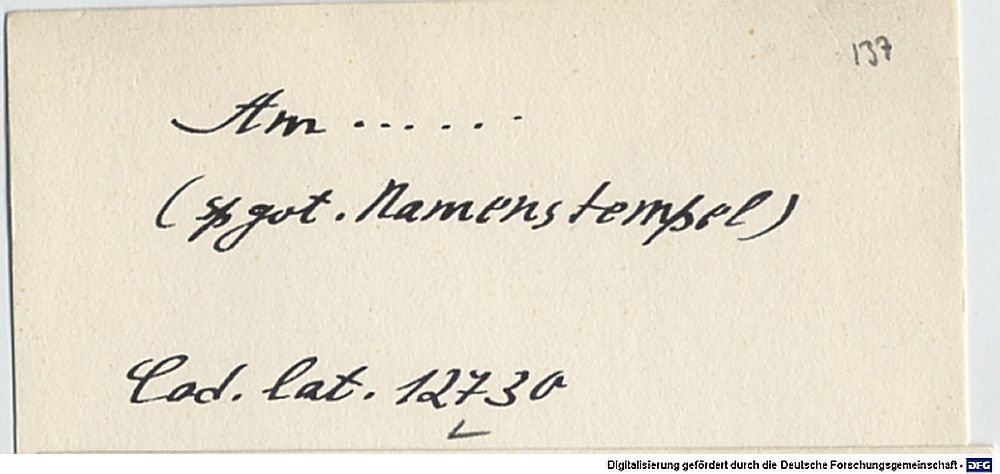 137
Am ......
(spgot. Namenstempel)
Cod. lat. 12730
Digitalisierung gefördert durch die Deutsche Forschungsgemeinschaft - DFG